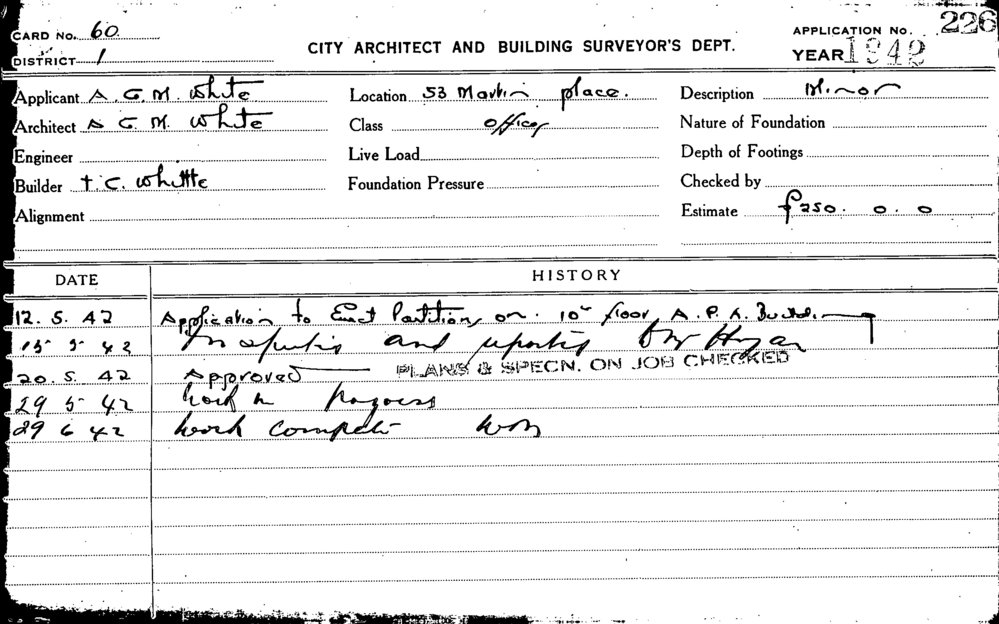 CARD No. 60
DISTRICT 1
CITY ARCHITECT AND BUILDING SURVEYOR'S DEPT.
APPLICATION No. 226
YEAR 1942
Applicant A. G. M. White
Location 53 Martin place.
Description Minor
Architect A G. M. White
Class offices
Nature of Foundation
Engineer
Live Load
Depth of Footings
Builder T. C. Whittle
Foundation Pressure
Checked by
Alignment
Estimate £250. 0. 0
DATE HISTORY
12. 5. 42 Application to Erect Partitions on 10th floor, A. P. A. Building
15 5 42 Inspected and reported by
20. 5. 42 Approved PLANS & SPECN. ON JOB CHECKED
29 5 42 Work in progress
29 6 42 Work complete